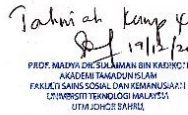 Tahniah
19/12/20
PROF. MADYA DR. SULAIMAN BIN
AKADEMI TAMADUN ISLAM
FAKULTI SAINS SOSIAL DAN KEMANUSIAAN
UNIVERSITI TEKNOLOGI MALAYSIA
UTM JOHOR BAHRU,